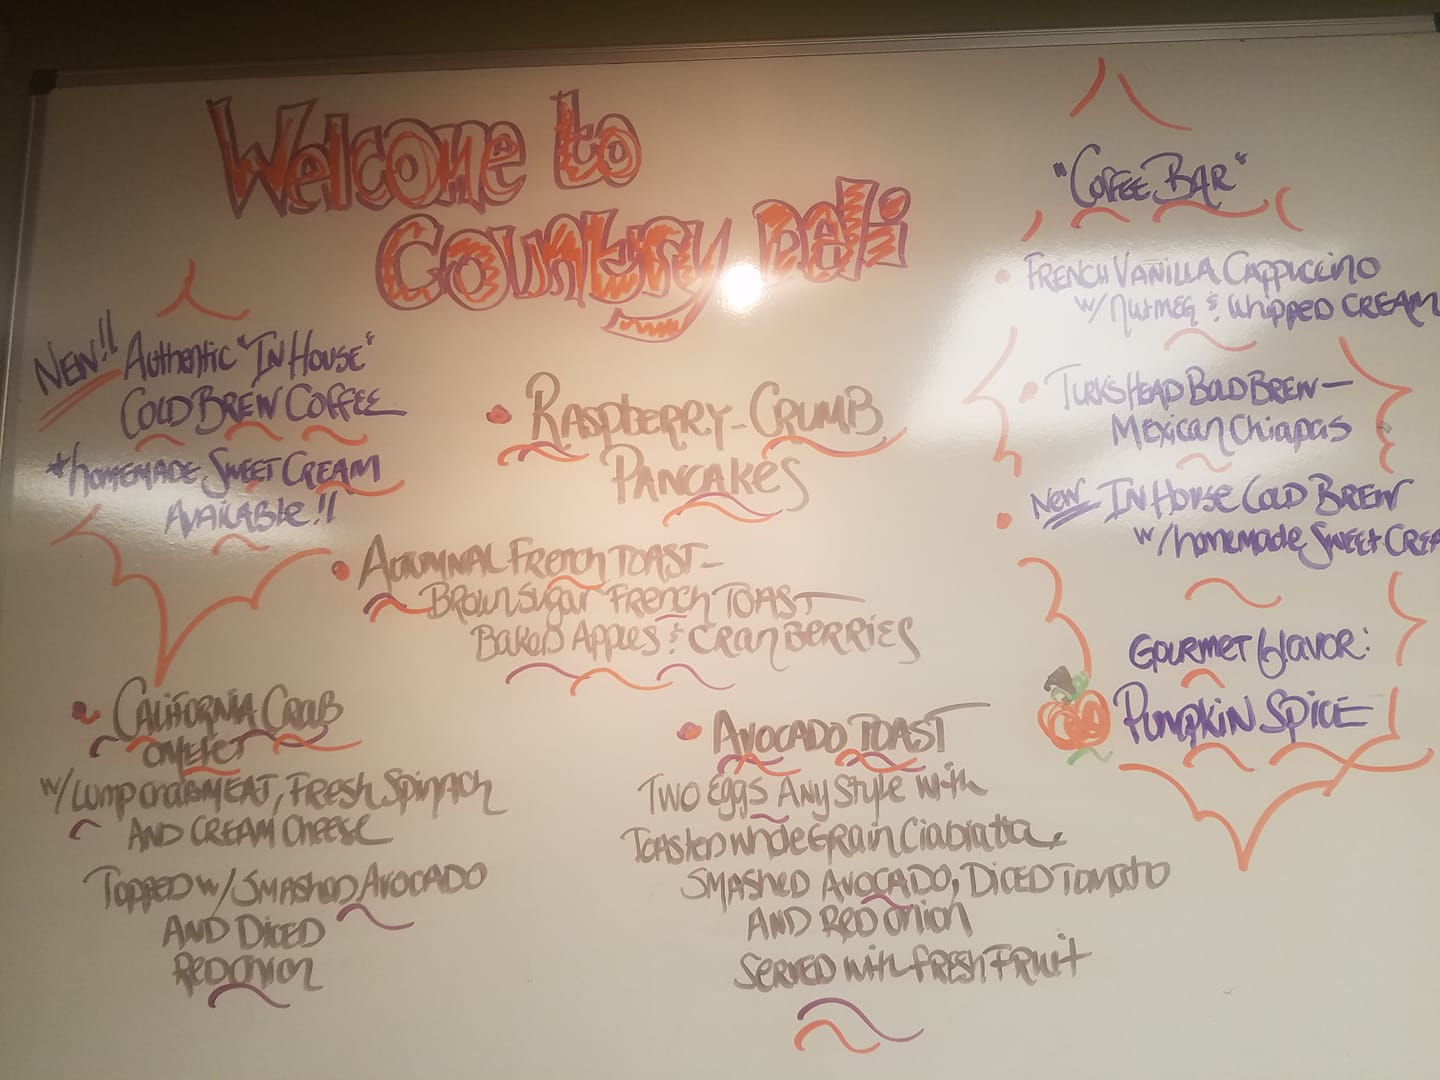 Welcome to
Country Deli
New!! Authentic "In House"
Cold Brew Coffee
*homemade Sweet Cream
Available!!
• Raspberry-Crumb
Pancakes
• Autumnal French Toast-
Brown Sugar French Toast
Baked Apples & Cranberries
• California Crab
Omelet
w/ Lump crabmeat, Fresh Spinach
and cream cheese
Topped w/ Smashed Avocado
and Diced
Red onion
• Avocado Toast
Two Eggs Any Style with
Toasted whole Grain Ciabatta,
Smashed Avocado, Diced Tomato
and Red onion
Served with fresh Fruit
"Coffee Bar"
• French Vanilla Cappuccino
w/ Nutmeg & Whipped Cream
• Turks Head Bold Brew-
Mexican Chiapas
• New In House Cold Brew
w/homemade Sweet Crea
Gourmet flavor:
Pumpkin Spice